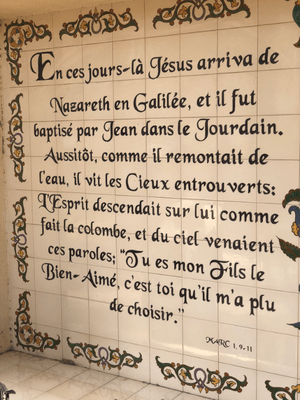 En ces jours-là Jésus arriva de
Nazareth en Galilée, et il fut
baptisé par Jean dans le Jourdain.
Aussitôt, comme il remontait de
l'eau, il vit les Cieux entrouverts:
L'Esprit descendait sur lui comme
fait la colombe, et du ciel venaient
ces paroles; "Tu es mon Fils le
Bien-Aimé, c'est toi qu'il m'a plu
de choisir."
MARC 1, 9-11